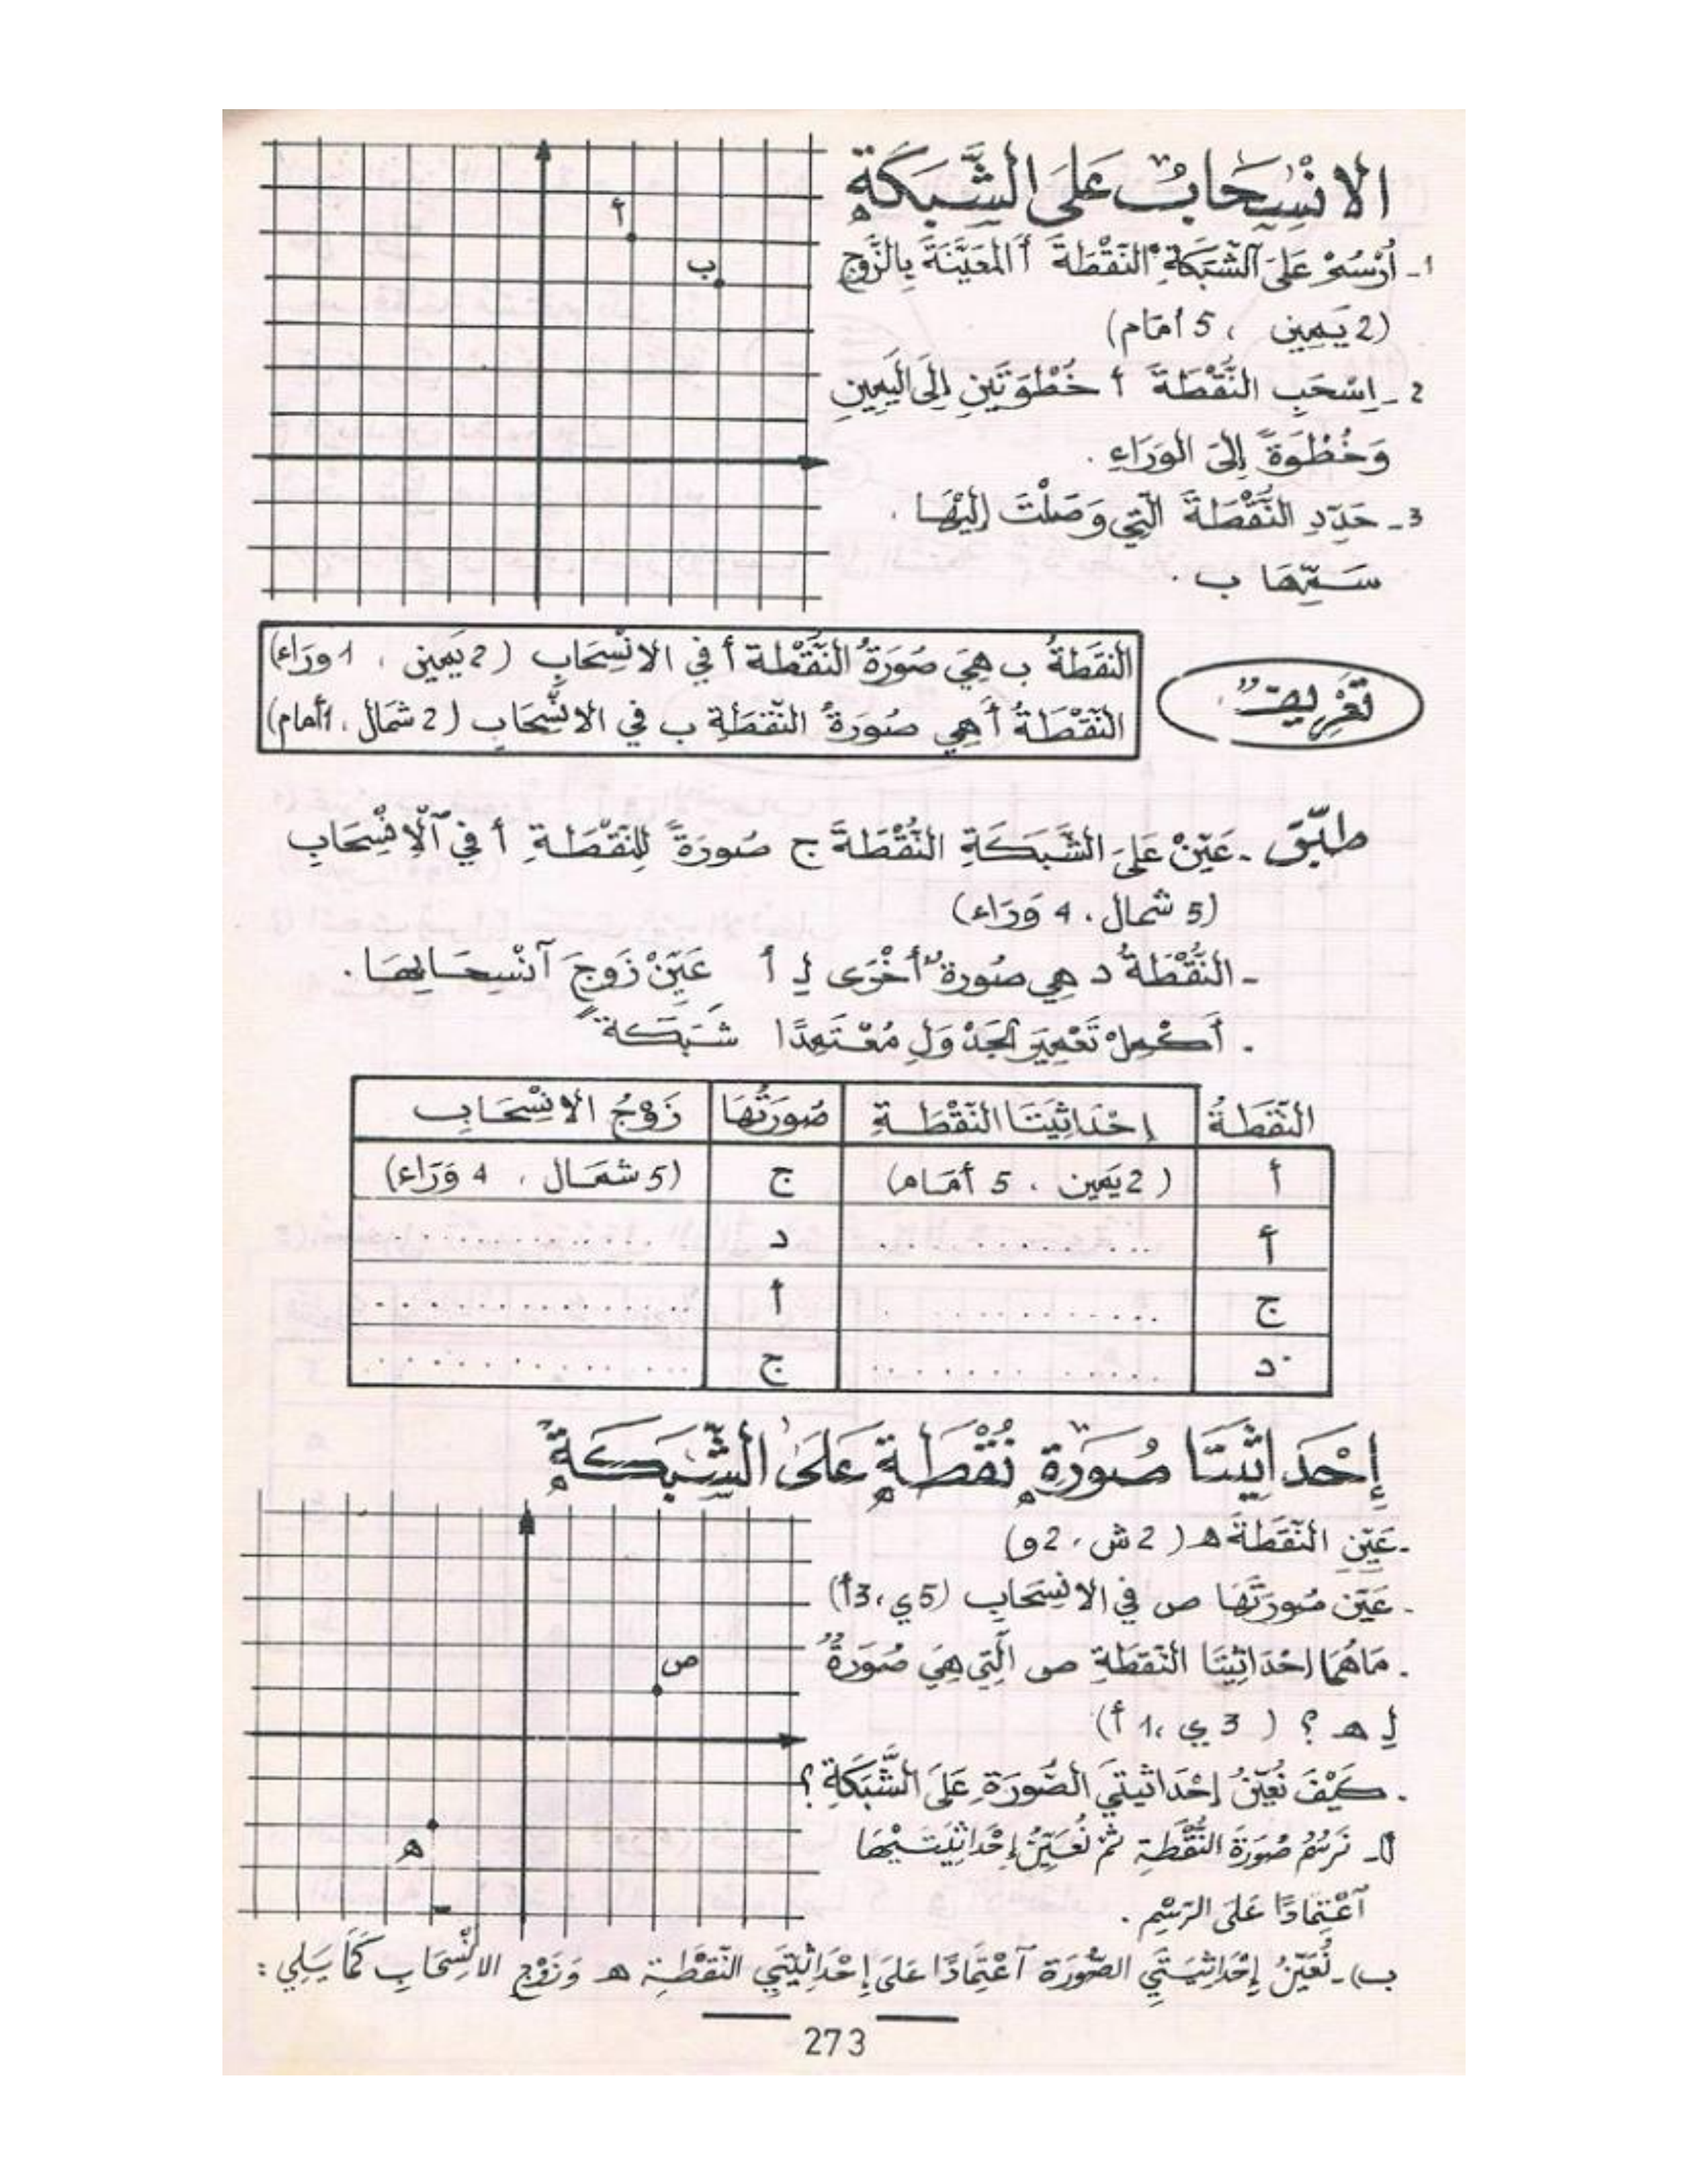 الانْسِحَابُ عَلَى الشَّبَكَةِ
أ
ب
1- اُرْسُمْ عَلَى الشَّبَكَةِ النُّقْطَةَ أ المُعَيَّنَةَ بِالزَّوْجِ
(2 يَمِين ، 5 أمَام)
2 - اِسْحَبِ النُّقْطَةَ أ خُطْوَتَيْنِ إِلَى اليَمِينِ
وَخُطْوَةً إِلَى الوَرَاءِ .
3 - حَدِّدِ النُّقْطَةَ الَّتِي وَصَلْتَ إِلَيْهَا .
سَمِّهَا ب .
تَعْرِيفٌ
النُّقْطَةُ ب هِيَ صُورَةُ النُّقْطَة أ فِي الانْسِحَابِ (2 يَمِين ، 1 وَرَاء)
النُّقْطَةُ أ هِي صُورَةُ النُّقْطَةِ ب في الانْسِحَابِ (2 شمَال ، 1 أمام)
طبّق - عَيِّنْ عَلَى الشَّبَكَةِ النُّقْطَةَ ج صُورَةً لِلنُّقْطَةِ أ فِي آلْاِنْسِحَابِ
(5 شمال ، 4 وَرَاء)
- النُّقْطَةُ د هِي صُورَةٌ أُخْرَى لِـ أ عَيِّنْ زَوجَ آنْسِحَابِهَا .
. أَكْمِلْ تَعْمِيرَ الجَدْوَلِ مُعْتَمِدًا شَبَكَة
النُّقْطَةُ إحْدَاثِيَتَا النُّقْطَةِ صُورَتُهَا زَوْجُ الانْسِحَابِ
أ (2 يَمِين ، 5 أمَام) ج (5 شمَال ، 4 وَرَاء)
أ ............ د ............
ج ............ أ ............
د ............ ج ............
إِحْدَاثِيَتَا صُورَةِ نُقْطَةٍ عَلَى الشَّبَكَةِ
ص
ه
- عَيِّنِ النُّقْطَةَ ه (2 ش ، 2 و)
. عَيِّن صُورَتَهَا ص فِي الانْسِحَابِ (5 ي ، 3 أ)
. مَا هُمَا إحْدَاثِيَتَا النُّقْطَةِ ص الَّتِي هِيَ صُورَةٌ
لِـ ه ؟ ( 3 ي ، 1 أ)
. كَيْفَ نُعَيِّنُ إحْدَاثِيتَي الصُّورَةِ عَلَى الشَّبَكَةِ ؟
أ - نَرْسُمُ صُورَةَ النُّقْطَةِ ثُمَّ نُعَيِّنُ إِحْدَاثِيَتَيْهَا
آعْتِمَادًا عَلَى الرَسْمِ .
ب) - نُعَيِّنُ إِحْدَاثِيَتَي الصُّورَة آعْتِمَادًا عَلَى إحْدَاثِيَتَيِ النُّقْطَةِ ه وَزَوْجِ الانْسِحَابِ كَمَا يَلِي :
273